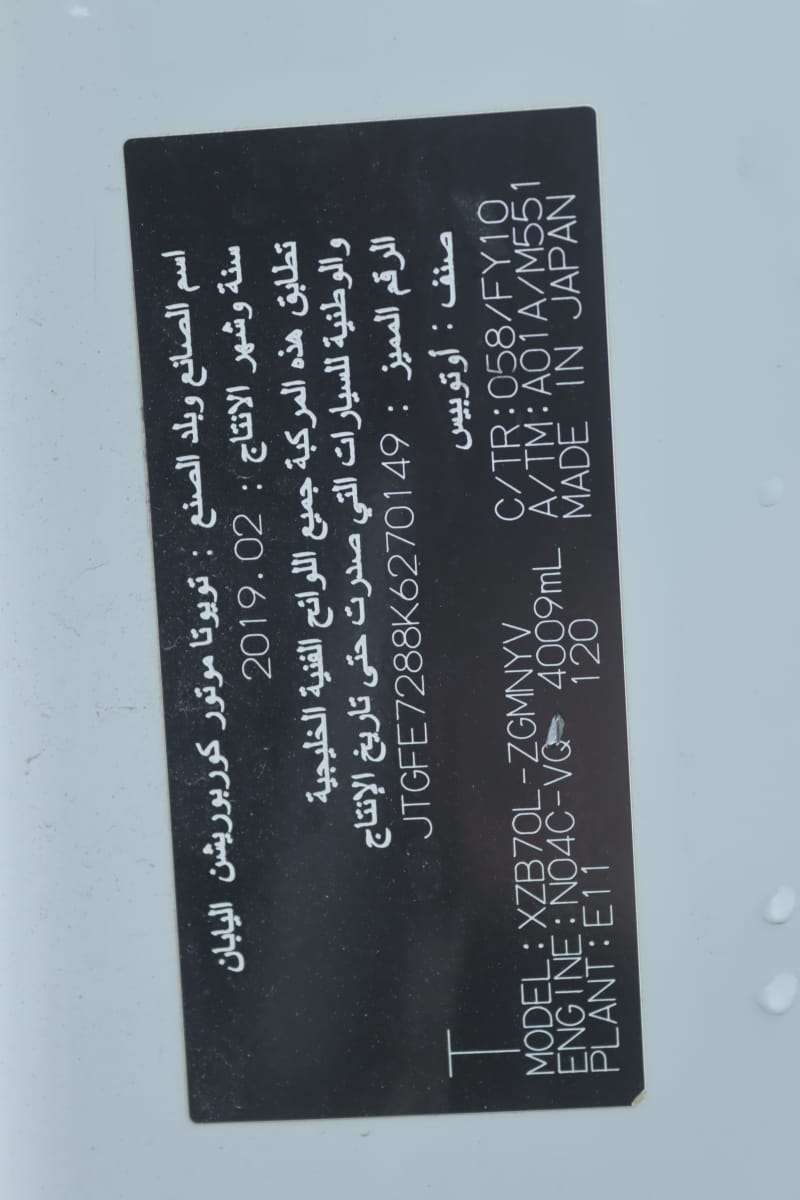 اسم الصانع وبلد الصنع : تويوتا موتور كوربوريشن اليابان
سنة وشهر الانتاج : 2019.02
تطابق هذه المركبة جميع اللوائح الفنية الخليجية
والوطنية للسيارات التي صدرت حتى تاريخ الإنتاج
الرقم المميز : JTGFE7288K6270149
صنف : أوتوبيس
T
MODEL:XZB70L-ZGMNYV C/TR:058/FY10
ENGINE:N04C-VQ 4009mL A/TM:A01A/M551
PLANT:E11 120 MADE IN JAPAN